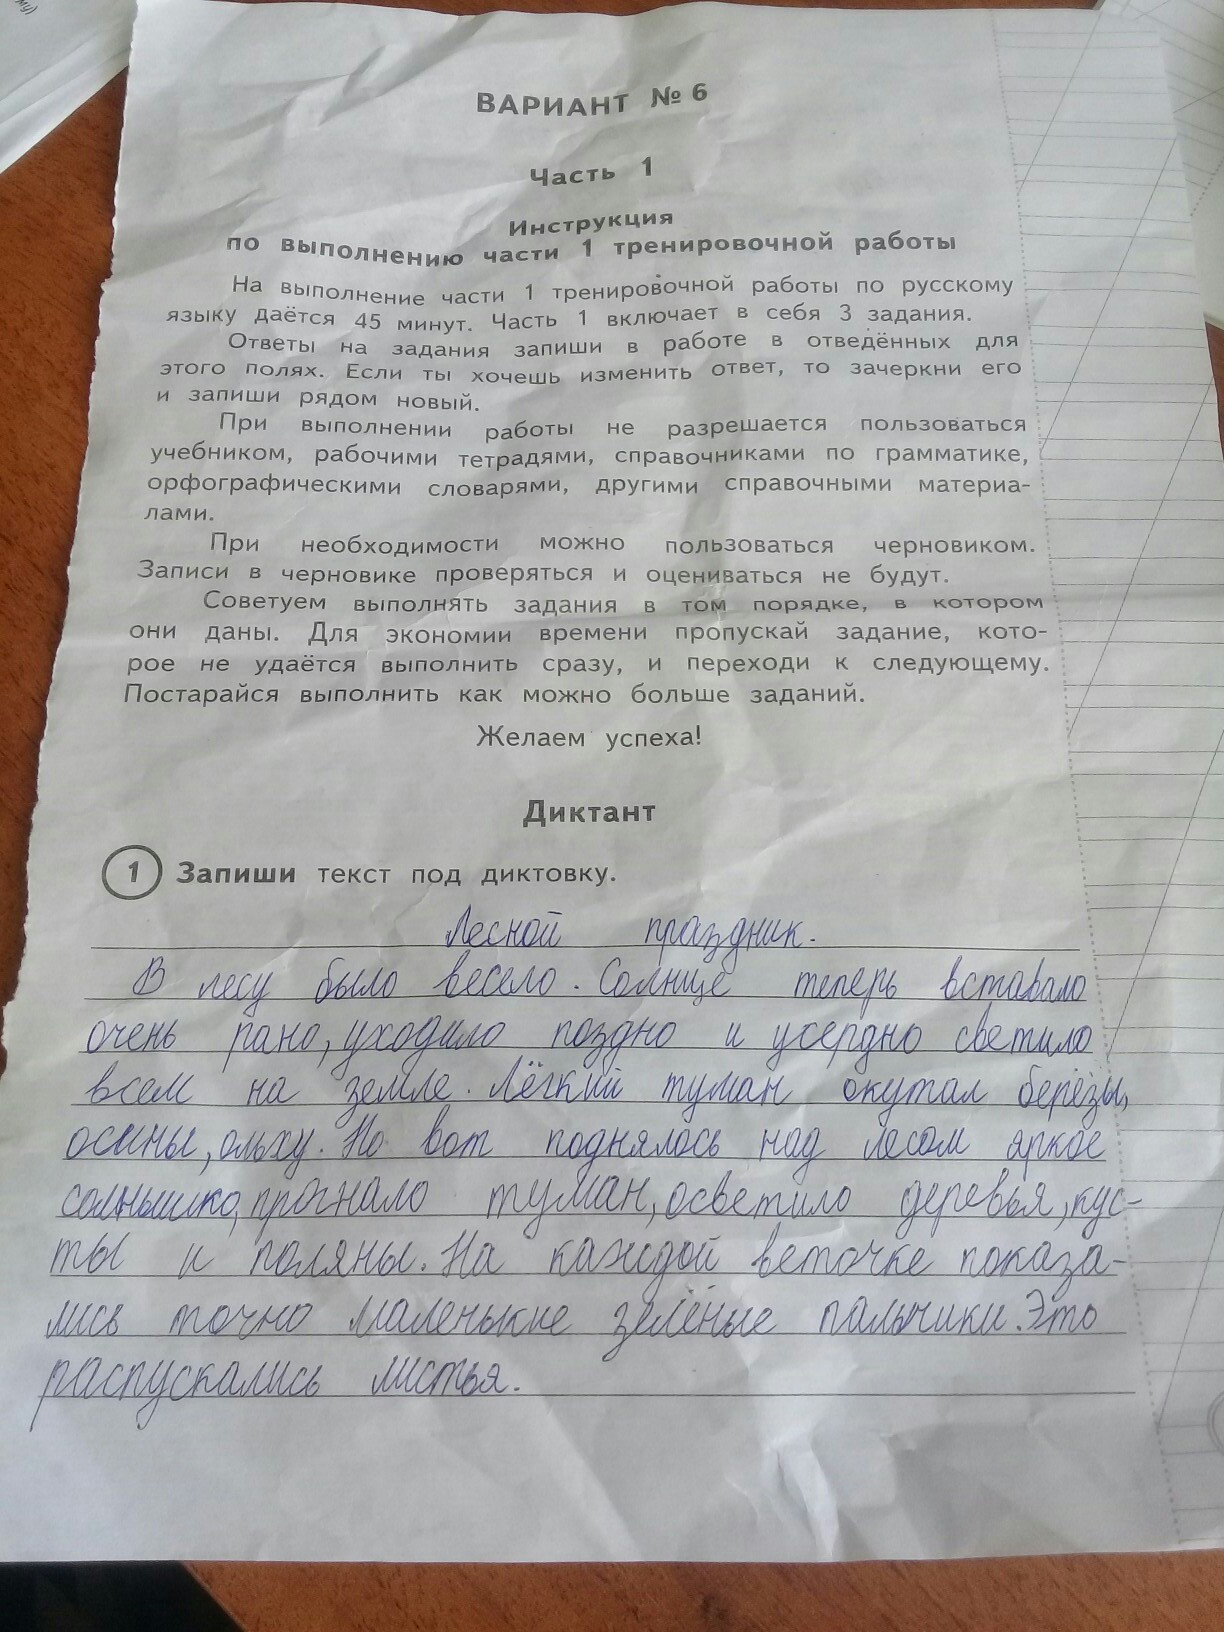 ВАРИАНТ № 6
Часть 1
Инструкция
по выполнению части 1 тренировочной работы
На выполнение части 1 тренировочной работы по русскому
языку даётся 45 минут. Часть 1 включает в себя 3 задания.
Ответы на задания запиши в работе в отведённых для
этого полях. Если ты хочешь изменить ответ, то зачеркни его
и запиши рядом новый.
При выполнении работы не разрешается пользоваться
учебником, рабочими тетрадями, справочниками по грамматике,
орфографическими словарями, другими справочными материа-
лами.
При необходимости можно пользоваться черновиком.
Записи в черновике проверяться и оцениваться не будут.
Советуем выполнять задания в том порядке, в котором
они даны. Для экономии времени пропускай задание, кото-
рое не удаётся выполнить сразу, и переходи к следующему.
Постарайся выполнить как можно больше заданий.
Желаем успеха!
Диктант
1 Запиши текст под диктовку.
Лесной праздник.
В лесу было весело. Солнце теперь вставало
очень рано, уходило поздно и усердно светило
всем на земле. Лёгкий туман окутал берёзы,
осины, ольху. Но вот поднялось над лесом яркое
солнышко, прогнало туман, осветило деревья, кус-
ты и поляны. На каждой веточке показа-
лись точно маленькие зелёные пальчики. Это
распускались листья.